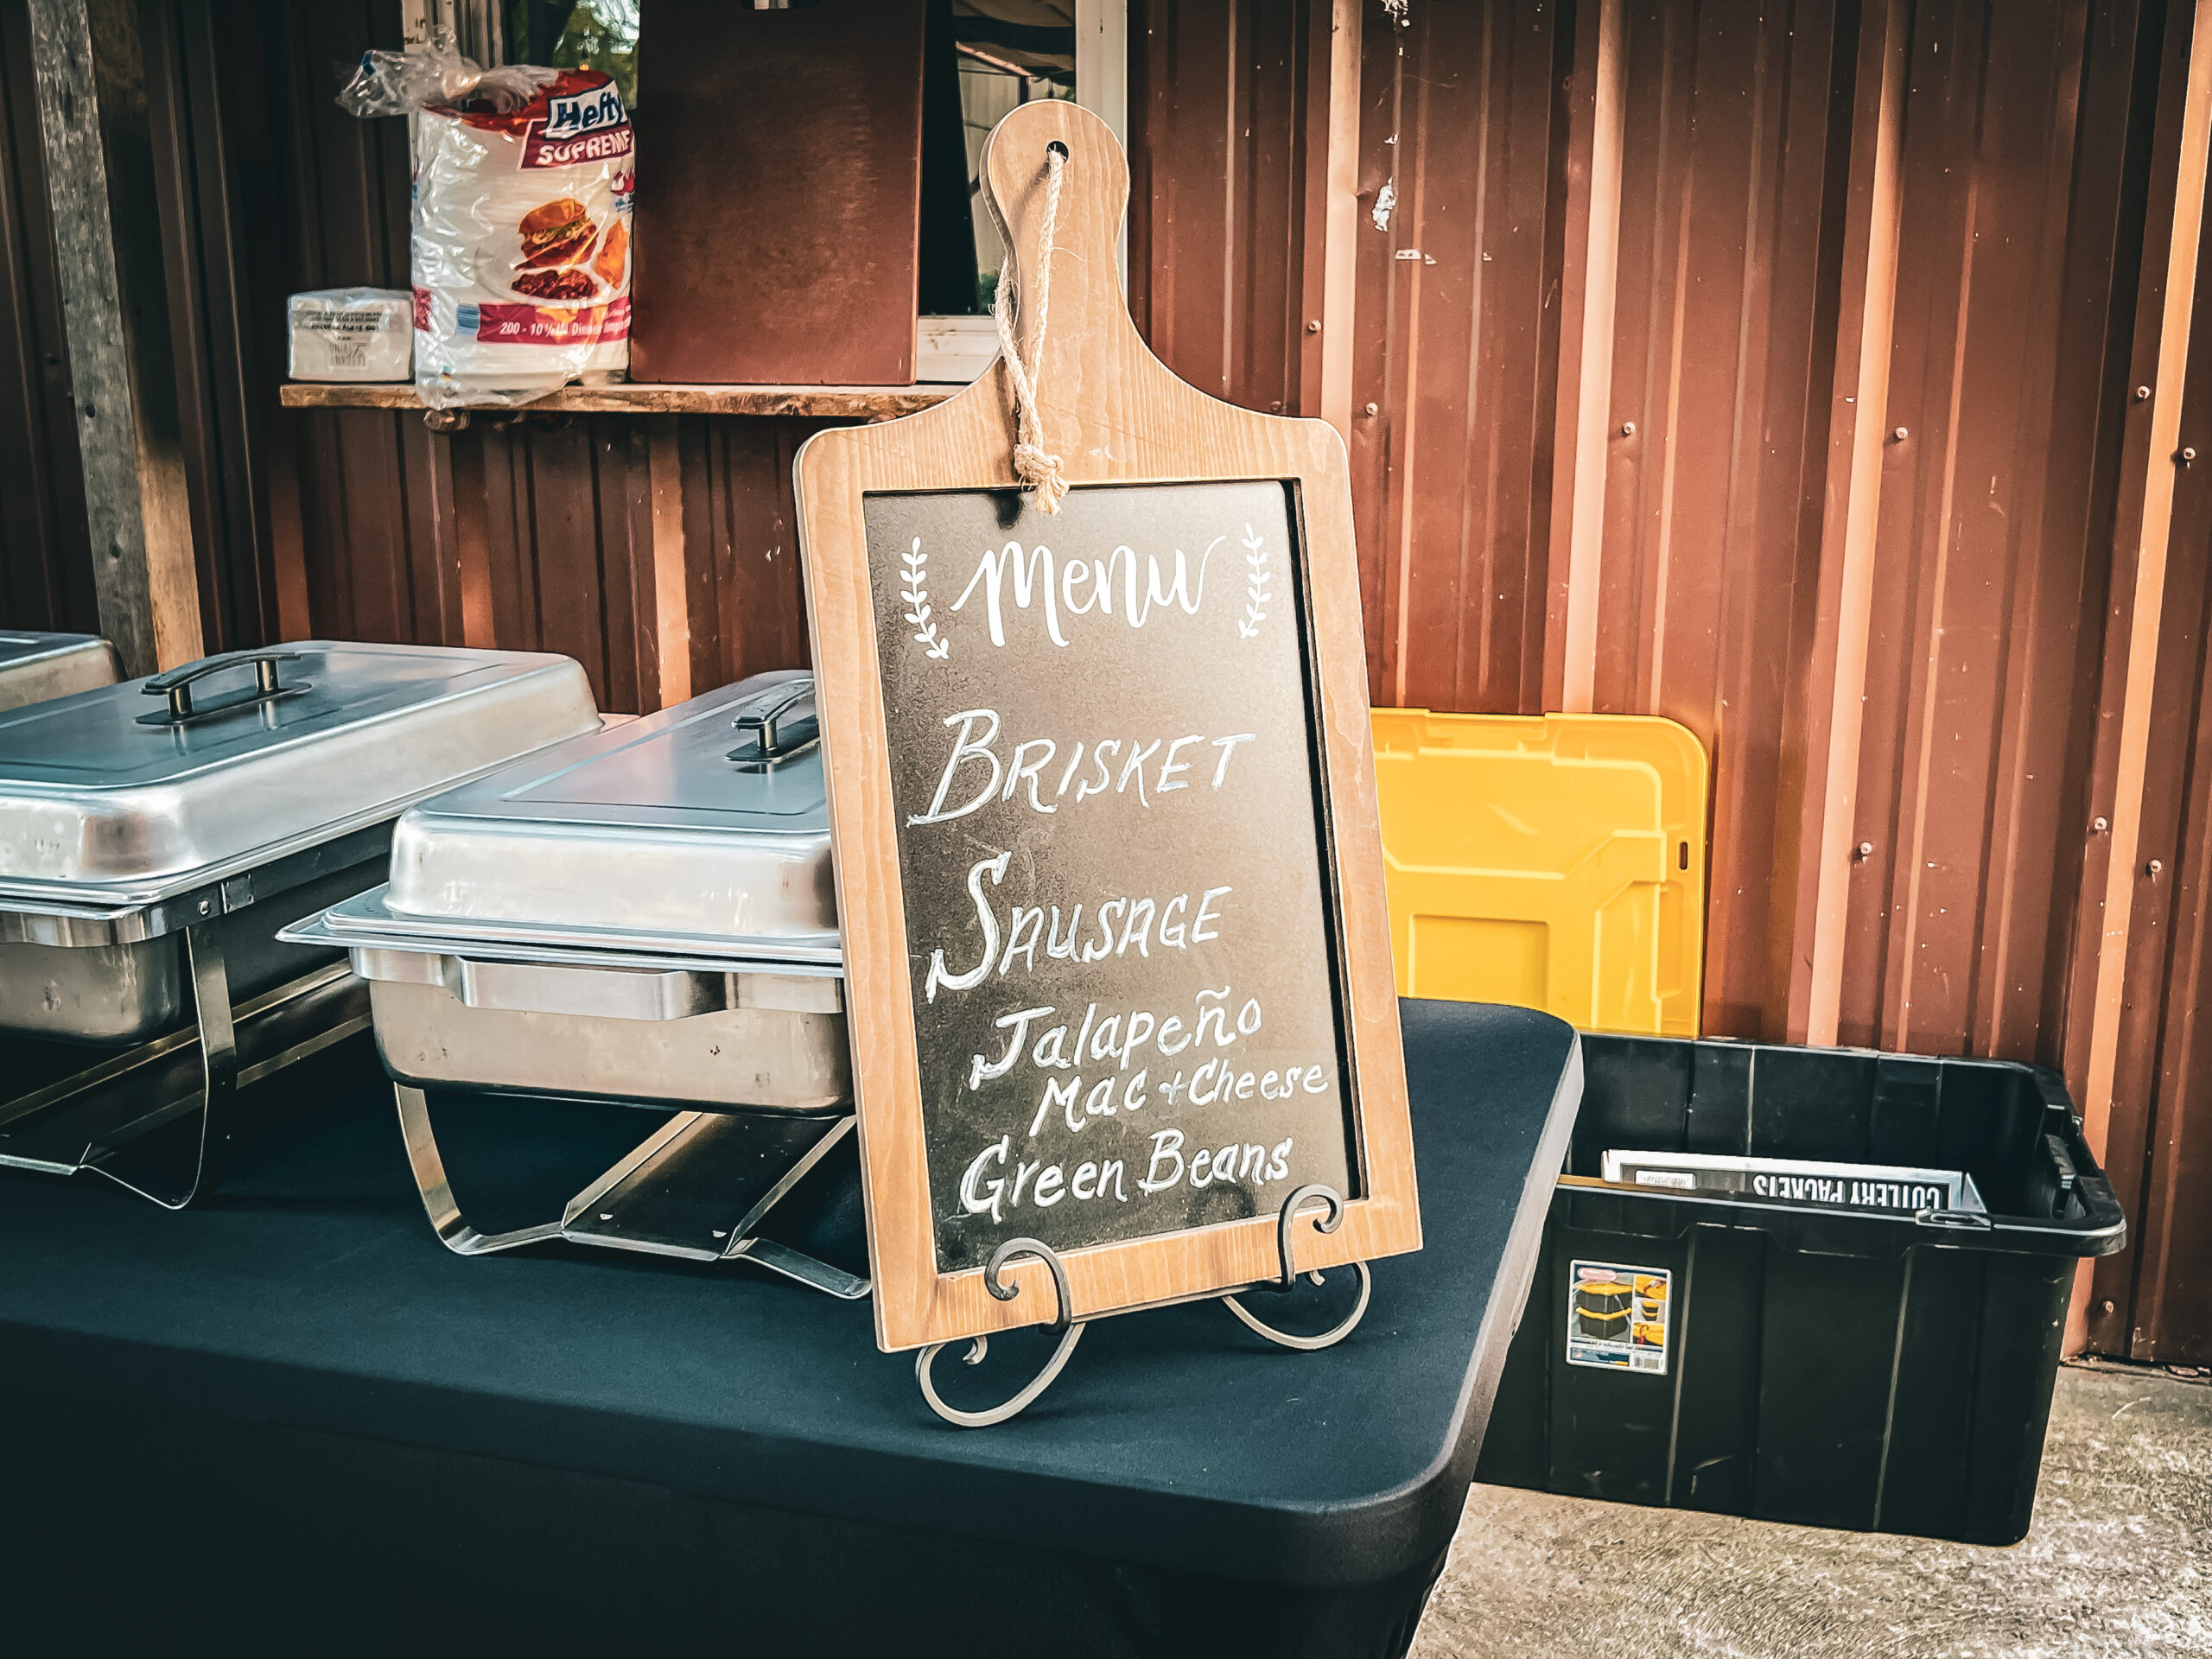 Hefty
SUPREME
200 - 10
Menu
BRISKET
SAUSAGE
Jalapeño
Mac + Cheese
Green Beans
CUTLERY PACKETS